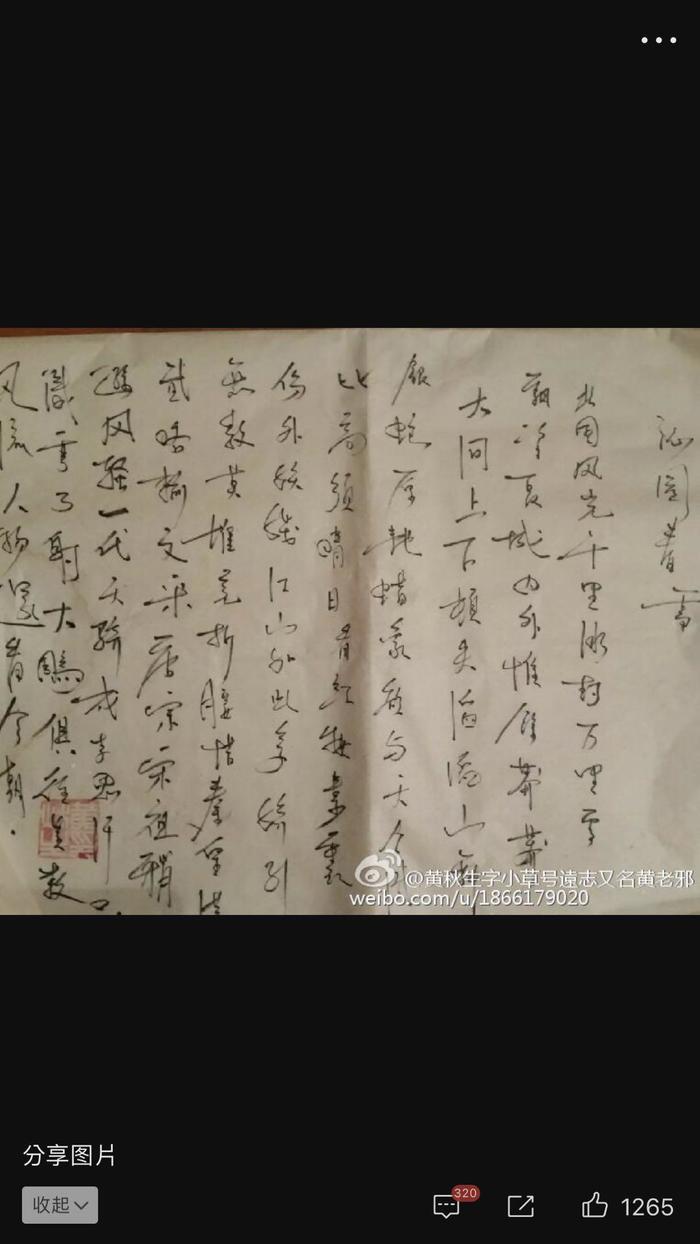 沁園春雪
北国风光千里冰封万里雪
飘望长城内外惟余莽莽
大河上下顿失滔滔山舞
银蛇原驰蜡象欲与天公
比高须晴日看红妆素裹
份外妖娆江山如此多娇引
無数英雄竞折腰惜秦皇
武略输文采唐宗宋祖稍
逊风骚一代天骄成吉思汗只
識弯弓射大鵰俱往矣数
风流人物還看今朝.
@黄秋生字小草号遠志又名黄老邪
weibo.com/u/1866179020
分享图片
收起
320
1265